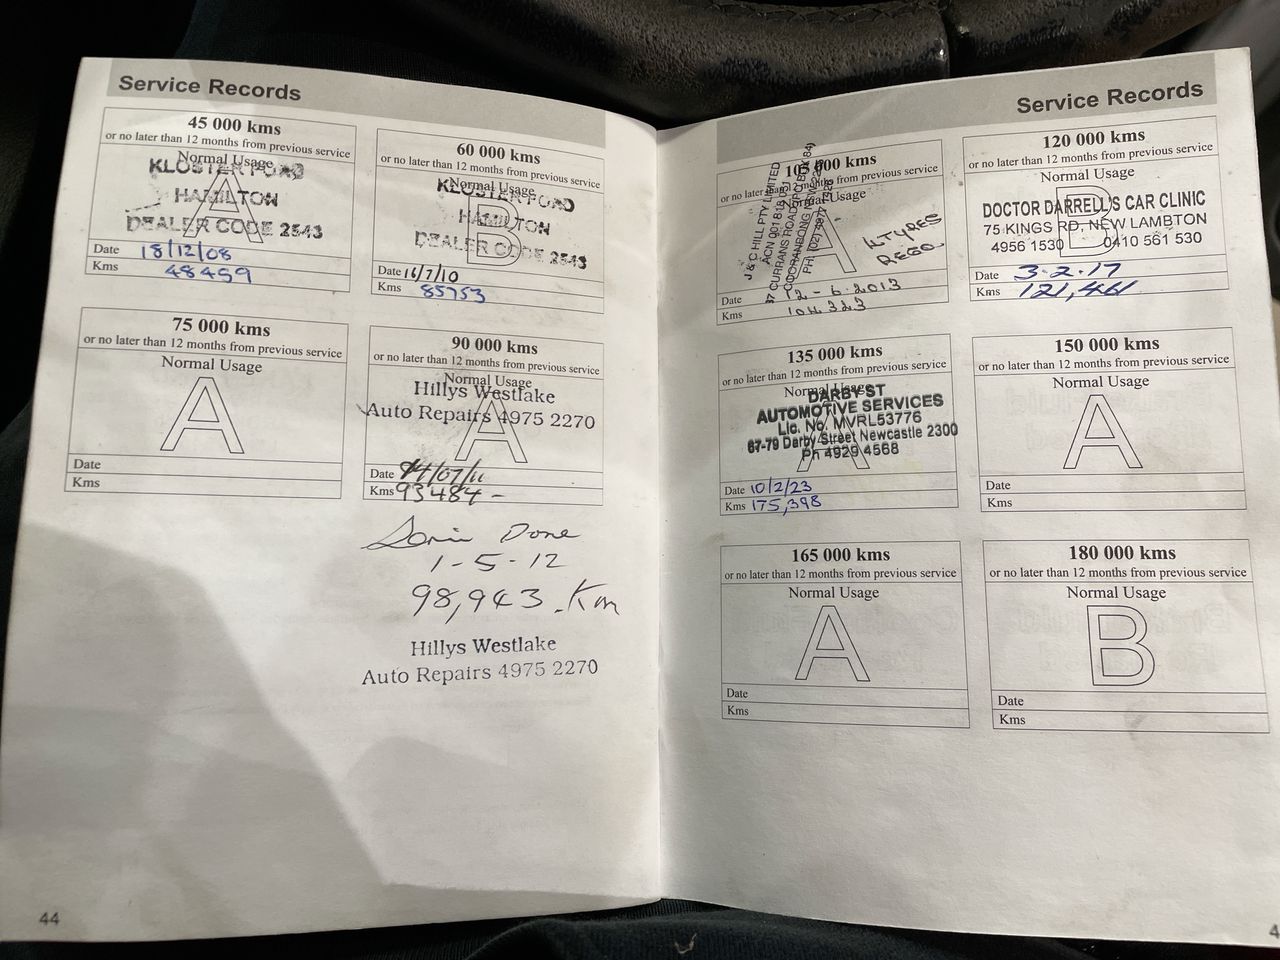 Service Records
45 000 kms
or no later than 12 months from previous service
Normal Usage
KLOSTER FORD
HAMILTON
DEALER CODE 2543
A
Date 18/12/08
Kms 48459
60 000 kms
or no later than 12 months from previous service
Normal Usage
KLOSTER FORD
HAMILTON
DEALER CODE 2543
B
Date 16/7/10
Kms 85753
75 000 kms
or no later than 12 months from previous service
Normal Usage
A
Date
Kms
90 000 kms
or no later than 12 months from previous service
Normal Usage
Hillys Westlake
Auto Repairs 4975 2270
A
Date /07/11
Kms 93484 -
Done
1-5-12
98,943.Km
Hillys Westlake
Auto Repairs 4975 2270
44
Service Records
105 000 kms
or no later than 12 months from previous service
Normal Usage
J & C HILL PTY LIMITED
ACN 001 818 051
37 CURRANS ROAD
COORANBONG NSW
PH: (02) 4977
A
4 TYRES
REGO
Date 12-6-2013
Kms 104323
120 000 kms
or no later than 12 months from previous service
Normal Usage
B
DOCTOR DARRELL'S CAR CLINIC
75 KINGS RD, NEW LAMBTON
4956 1530 0410 561 530
Date 3-2-17
Kms 121,461
135 000 kms
or no later than 12 months from previous service
Normal Usage
DARBY ST
AUTOMOTIVE SERVICES
Lic. No. MVRL53776
67-79 Darby Street Newcastle 2300
Ph 4929 4568
A
Date 10/2/23
Kms 175,398
150 000 kms
or no later than 12 months from previous service
Normal Usage
A
Date
Kms
165 000 kms
or no later than 12 months from previous service
Normal Usage
A
Date
Kms
180 000 kms
or no later than 12 months from previous service
Normal Usage
B
Date
Kms
4